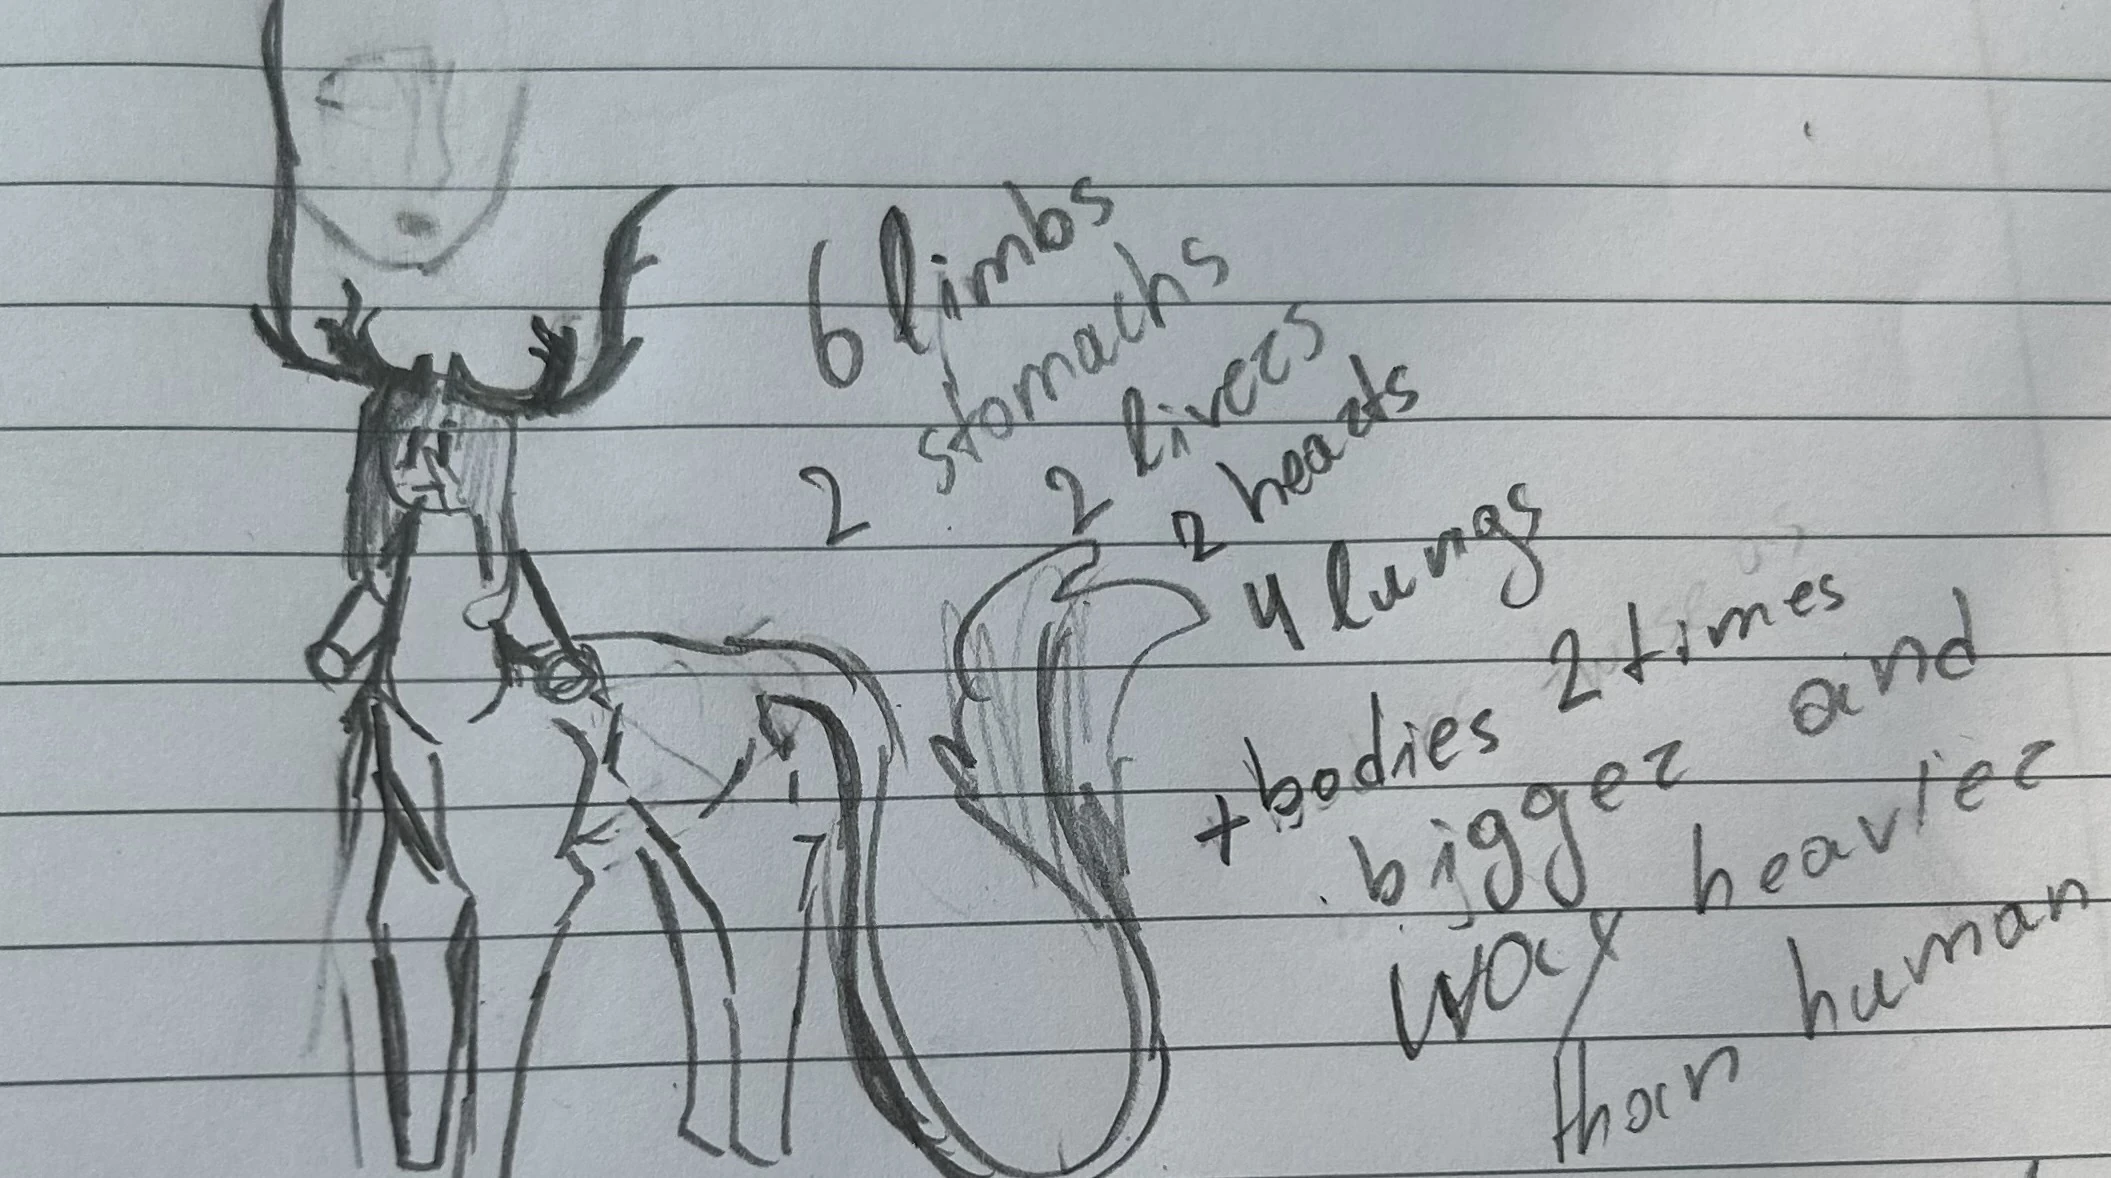 6 limbs
2 stomachs
2 livers
2 hearts
4 lungs
+bodies 2 times
bigger and
way heavier
than human